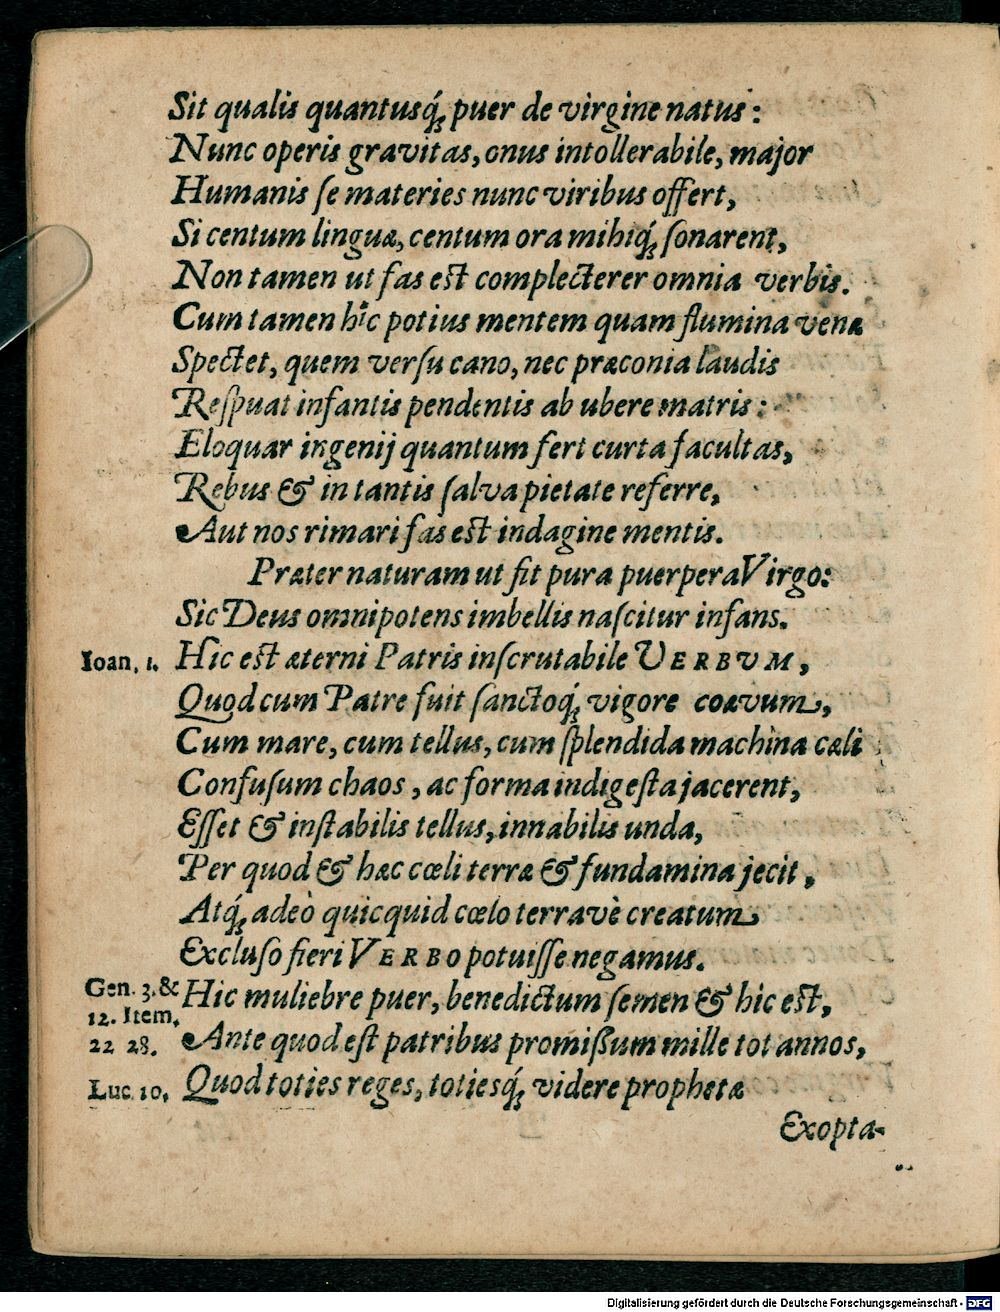 Sit qualis quantusq́; puer de virgine natus:
Nunc operis gravitas, onus intollerabile, major
Humanis ſe materies nunc viribus offert,
Si centum linguæ, centum ora mihiq́; ſonarent,
Non tamen ut fas est complecterer omnia verbis.
Cum tamen hic potius mentem quam flumina venæ
Spectet, quem verſu cano, nec præconia laudis
Reſpuat infantis pendentis ab ubere matris:
Eloquar ingenij quantum fert curta facultas,
Rebus & in tantis ſalva pietate referre,
Aut nos rimari fas est indagine mentis.
Præter naturam ut fit pura puerpera Virgo:
Sic Deus omnipotens imbellis naſcitur infans.
Ioan, 1. Hic est æterni Patris inſcrutabile VERBVM,
Quod cum Patre fuit ſanctoq́; vigore coævum,
Cum mare, cum tellus, cum ſplendida machina cæli
Confuſum chaos, ac forma indigeſta jacerent,
Eſſet & inſtabilis tellus, innabilis unda,
Per quod & hæc cœli terræ & fundamina jecit,
Atq́; adeò quicquid cœlo terravè creatum
Excluſo fieri VERBO potuiſſe negamus.
Gen. 3. & Hic muliebre puer, benedictum ſemen & hic est,
12. Item, Ante quod eſt patribus promißum mille tot annos,
22 28.
Luc. 10, Quod toties reges, totiesq́; videre prophetæ
Exopta-
Digitalisierung gefördert durch die Deutsche Forschungsgemeinschaft - DFG